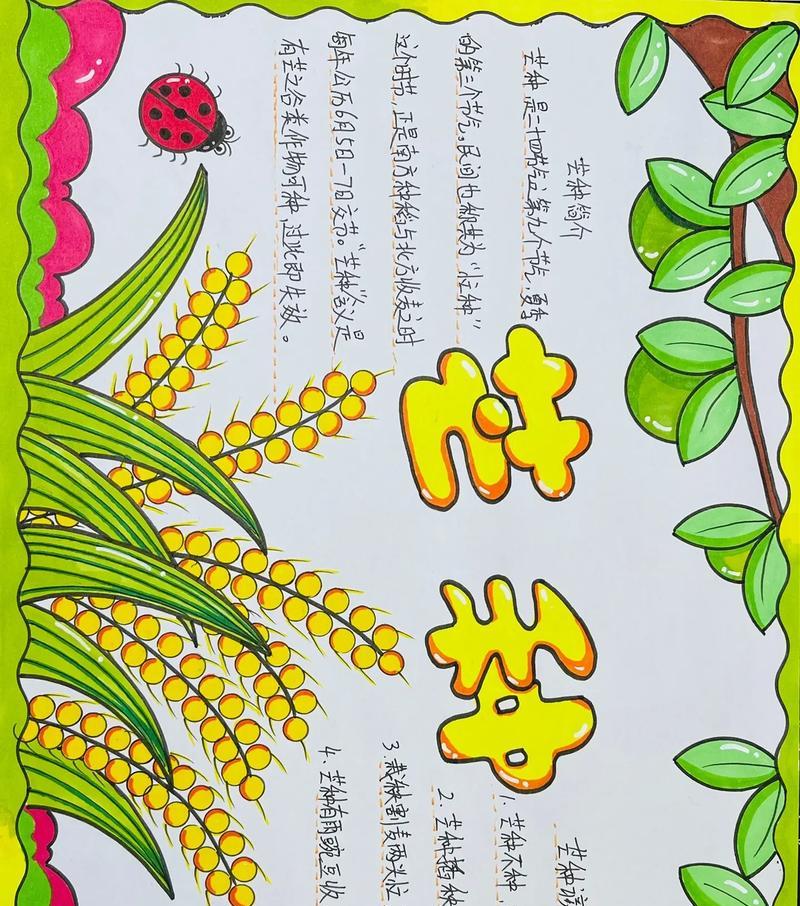 芒种简介
芒种是二十四节气之第九个节气,夏季
的第三个节气。民间也称其为“忙种”
这个时节,正是南方种稻与北方收麦之时
每年公历6月5日-7日交节。“芒种”含义是
有芒之谷类作物可种,过此即失效。
芒种
芒种谚
1.芒种不种,
2.芒种插秧
3.栽秧割麦两头忙
4.芒种有雨豌豆收